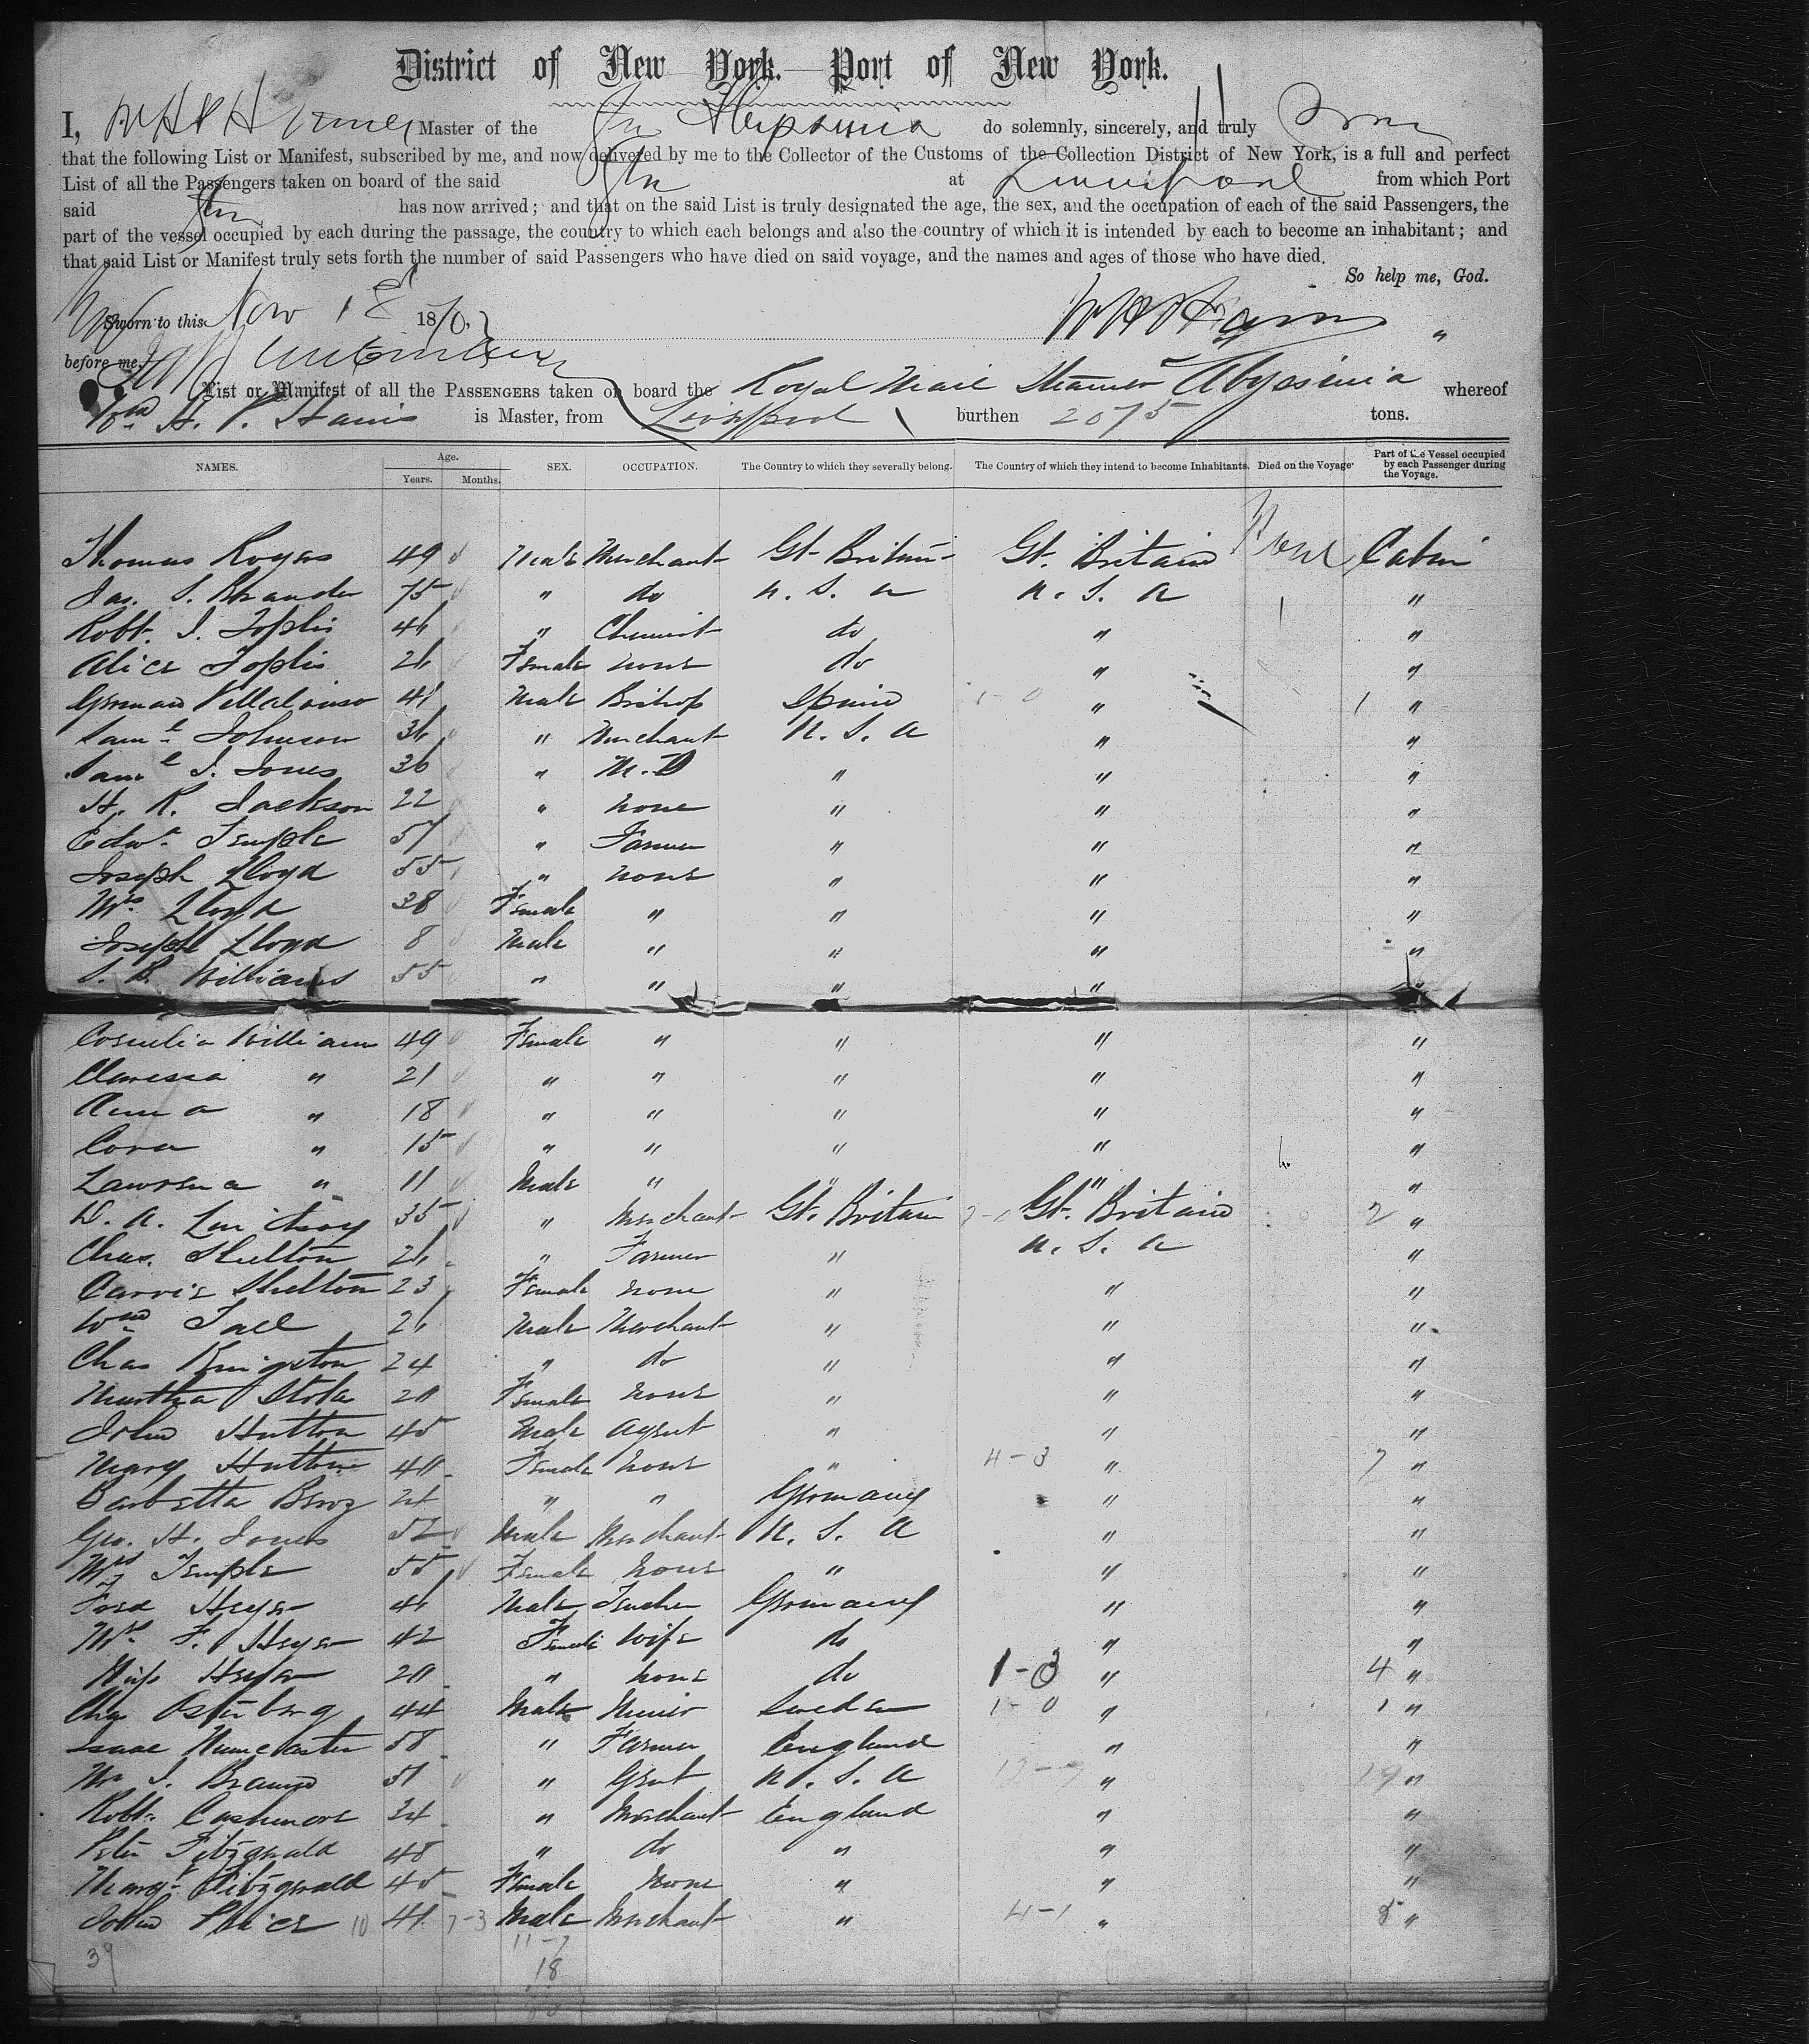 District of New York. Port of New York.
I, Master of the Str Abyssinia do solemnly, sincerely, and truly Swear
that the following List or Manifest, subscribed by me, and now delivered by me to the Collector of the Customs of the Collection District of New York, is a full and perfect
List of all the Passengers taken on board of the said Str at Liverpool from which Port
said Str has now arrived; and that on the said List is truly designated the age, the sex, and the occupation of each of the said Passengers, the
part of the vessel occupied by each during the passage, the country to which each belongs and also the country of which it is intended by each to become an inhabitant; and
that said List or Manifest truly sets forth the number of said Passengers who have died on said voyage, and the names and ages of those who have died.
So help me, God.
Sworn to this Nov 18 1870,
before me,
List or Manifest of all the Passengers taken on board the Royal Mail Steamer Abyssinia whereof
Wm H. P. Hains is Master, from Liverpool burthen 2075 tons.
NAMES. Age. Years. Months. SEX. OCCUPATION. The Country to which they severally belong. The Country of which they intend to become Inhabitants. Died on the Voyage. Part of the Vessel occupied by each Passenger during the Voyage.
Thomas Rogers 49 Male Merchant Gt. Britain Gt. Britain None Cabin
Jas. S. Brander 75 " do U. S. A U. S. A "
Robt. J. Toplis 46 " Chemist do " "
Alice Toplis 26 Female none do " "
41 Male Bishop Spain 1-0 " 1 "
Saml Johnson 36 " Merchant U. S. A " "
Saml J. Jones 36 " M.D " " "
H. R. Jackson 22 " none " " "
Edwd. Temple 57 " Farmer " " "
Joseph Lloyd 55 " none " " "
Mrs. Lloyd 38 Female " " " "
Joseph Lloyd 8 Male " " " "
S. B. Williams 55 " " " " "
Cornelia William 49 Female " " " "
Claressa " 21 " " " " "
Anna " 18 " " " " "
Cora " 15 " " " " "
" 11 Male " " " "
D. A. Lindsay 35 " Merchant Gt. Britain 2-0 Gt. Britain 2 "
Chas. Skelton 26 " Farmer " U. S. A "
Carrie Skelton 23 Female none " " "
Wm 26 Male Merchant " " "
Chas Kingston 24 " do " " "
Martha 20 Female none " " "
John Hutton 45 Male Agent " " "
Mary Hutton 40 Female none " 4-3 " 7 "
Barbetta 24 " " Germany " "
Geo. H. Jones 52 Male Merchant U. S. A " "
Mrs Temple 55 Female none " " "
Heyer 46 Male Teacher Germany " "
Mrs. F. Heyer 42 Female wife do " "
Miss Heyer 20 " none do 1-3 " 4 "
Chas Osterberg 44 Male Sweden 1-0 " 1 "
Isaac Muncaster 58 " Farmer England " "
51 " Gent U. S. A 12-7 " 19 "
Robt. Cashmore 34 " Merchant England " "
Peter Fitzgerald 48 " do " " "
Margt Fitzgerald 45 Female None " " "
John Price 10 41 7-3 Male Merchant " 4-1 " 5 "
39 11-7
18